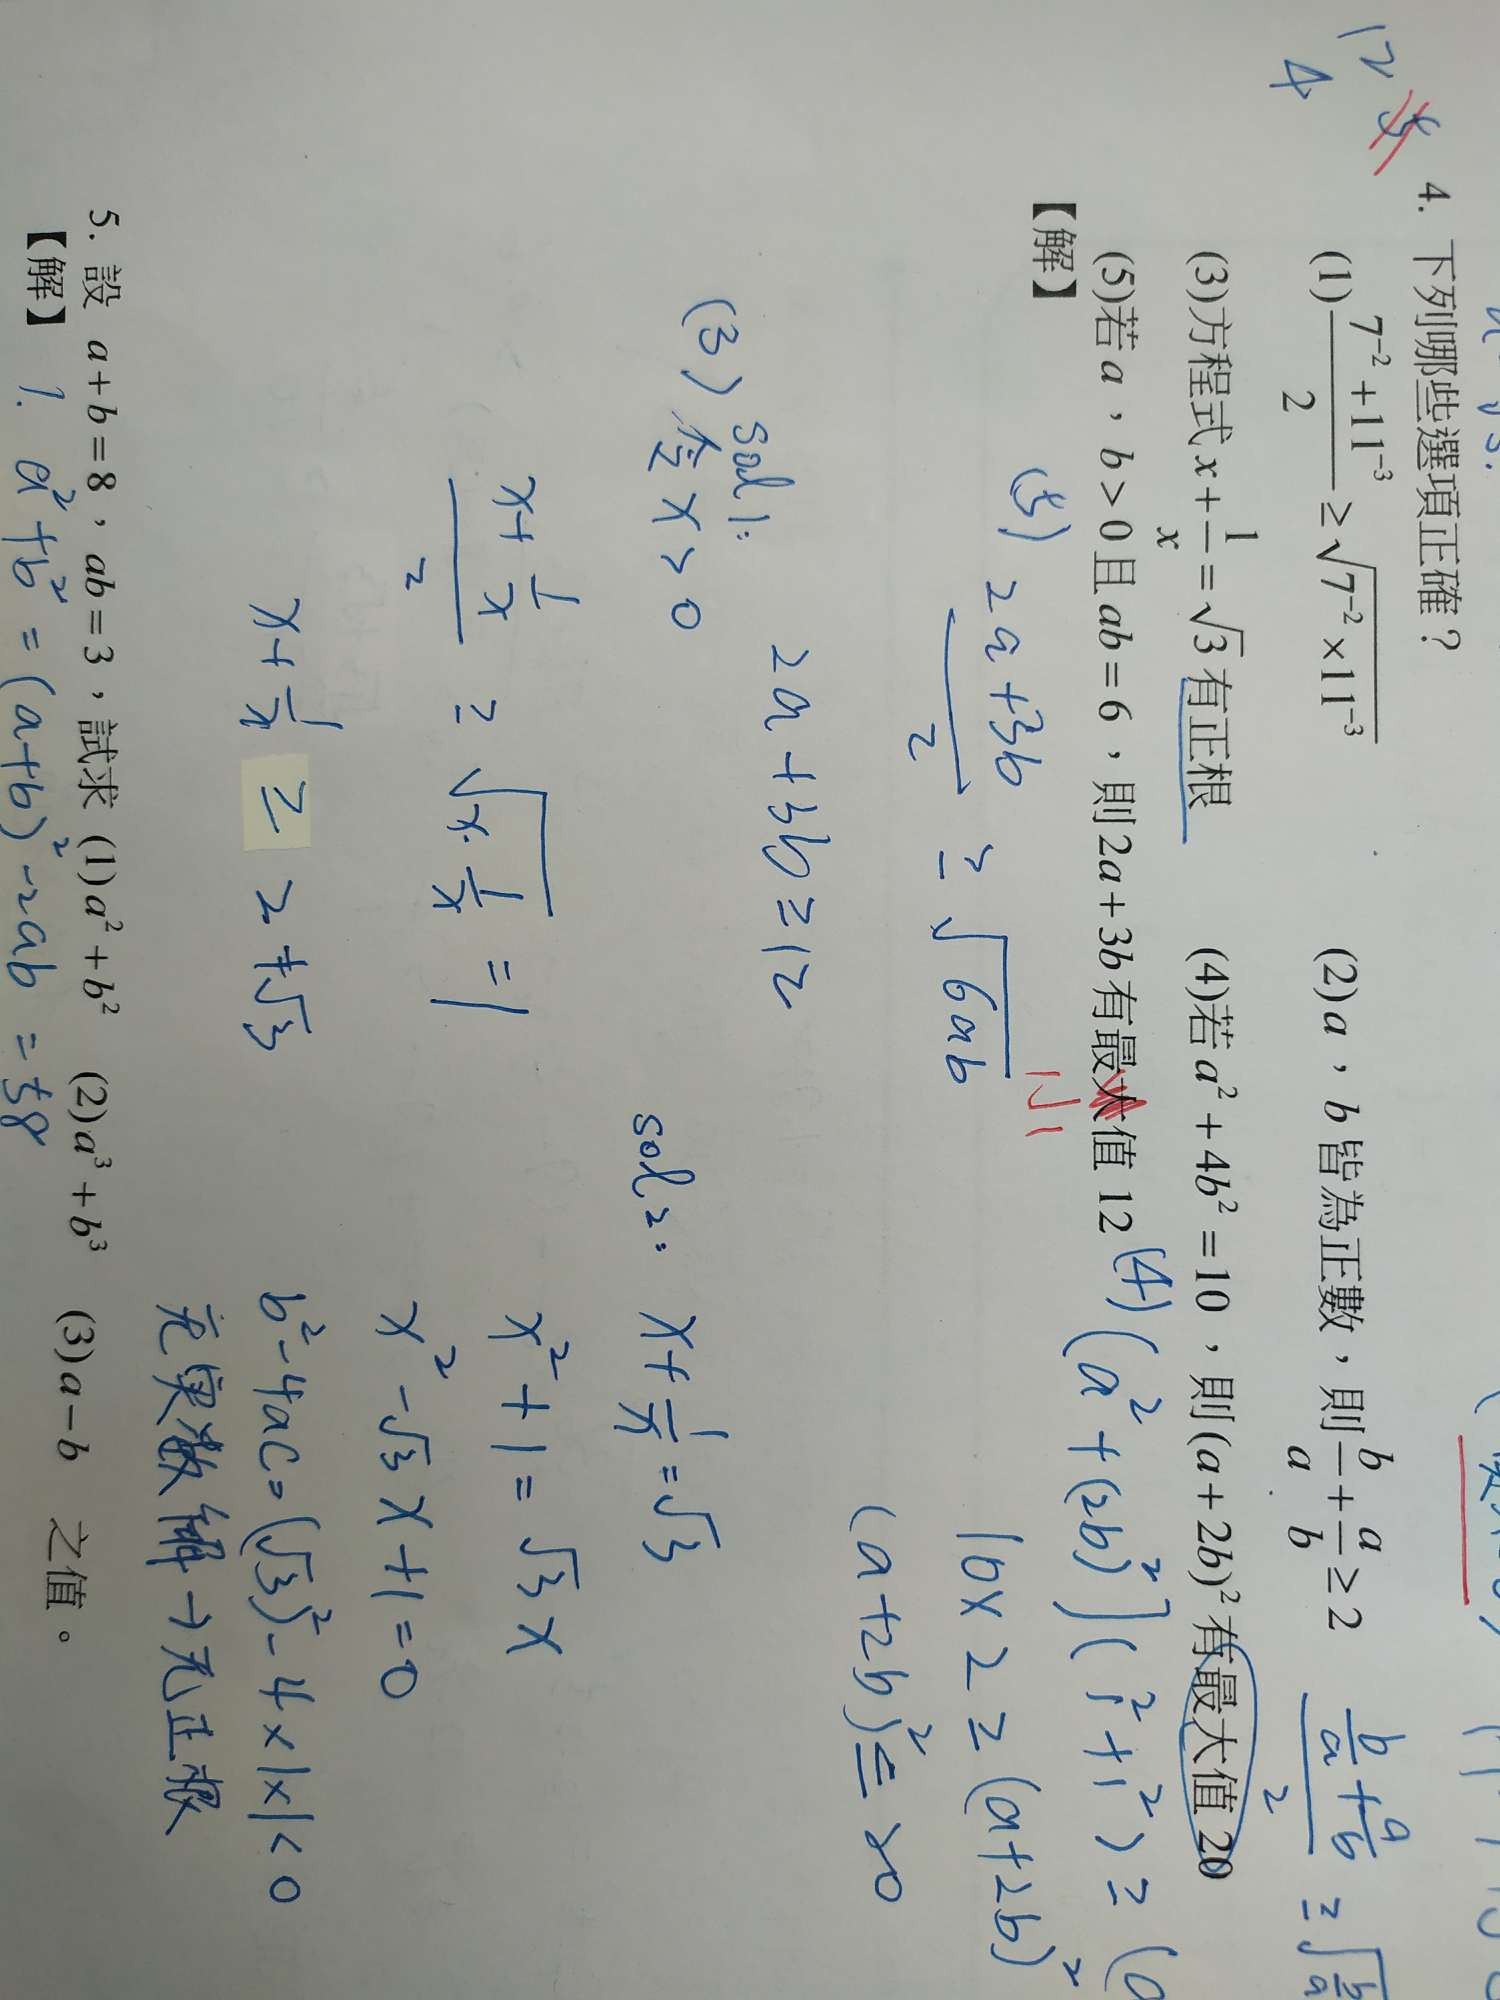 12 5
4
4. 下列哪些選項正確？
(1) (7⁻²+11⁻³)/2 ≥ √(7⁻²×11⁻³) (2)a，b 皆為正數，則 b/a + a/b ≥ 2
(b/a + a/b)/2 ≥ √(b/a
(3)方程式 x + 1/x = √3 有正根 (4)若 a² + 4b² = 10，則 (a + 2b)² 有最大值 20
(5)若 a，b > 0 且 ab = 6，則 2a + 3b 有最大值 12
小
【解】
(4) (a² + (2b)²](1² + 1²) ≥ (a
10×2 ≥ (a+2b)²
(a+2b)² ≤ 20
(5) (2a+3b)/2 ≥ √(6ab)
2a+3b ≥ 12
sol 1:
(3) 令 x > 0
(x + 1/x)/2 ≥ √(x·1/x) = 1
x + 1/x ≥ 2 ≠ √3
sol 2: x + 1/x = √3
x² + 1 = √3 x
x² - √3 x + 1 = 0
b² - 4ac = (√3)² - 4×1×1 < 0
无實数解→无正根
5. 設 a + b = 8，ab = 3，試求 (1)a² + b² (2)a³ + b³ (3)a − b 之值。
【解】 1. a² + b² = (a+b)² - 2ab = 58